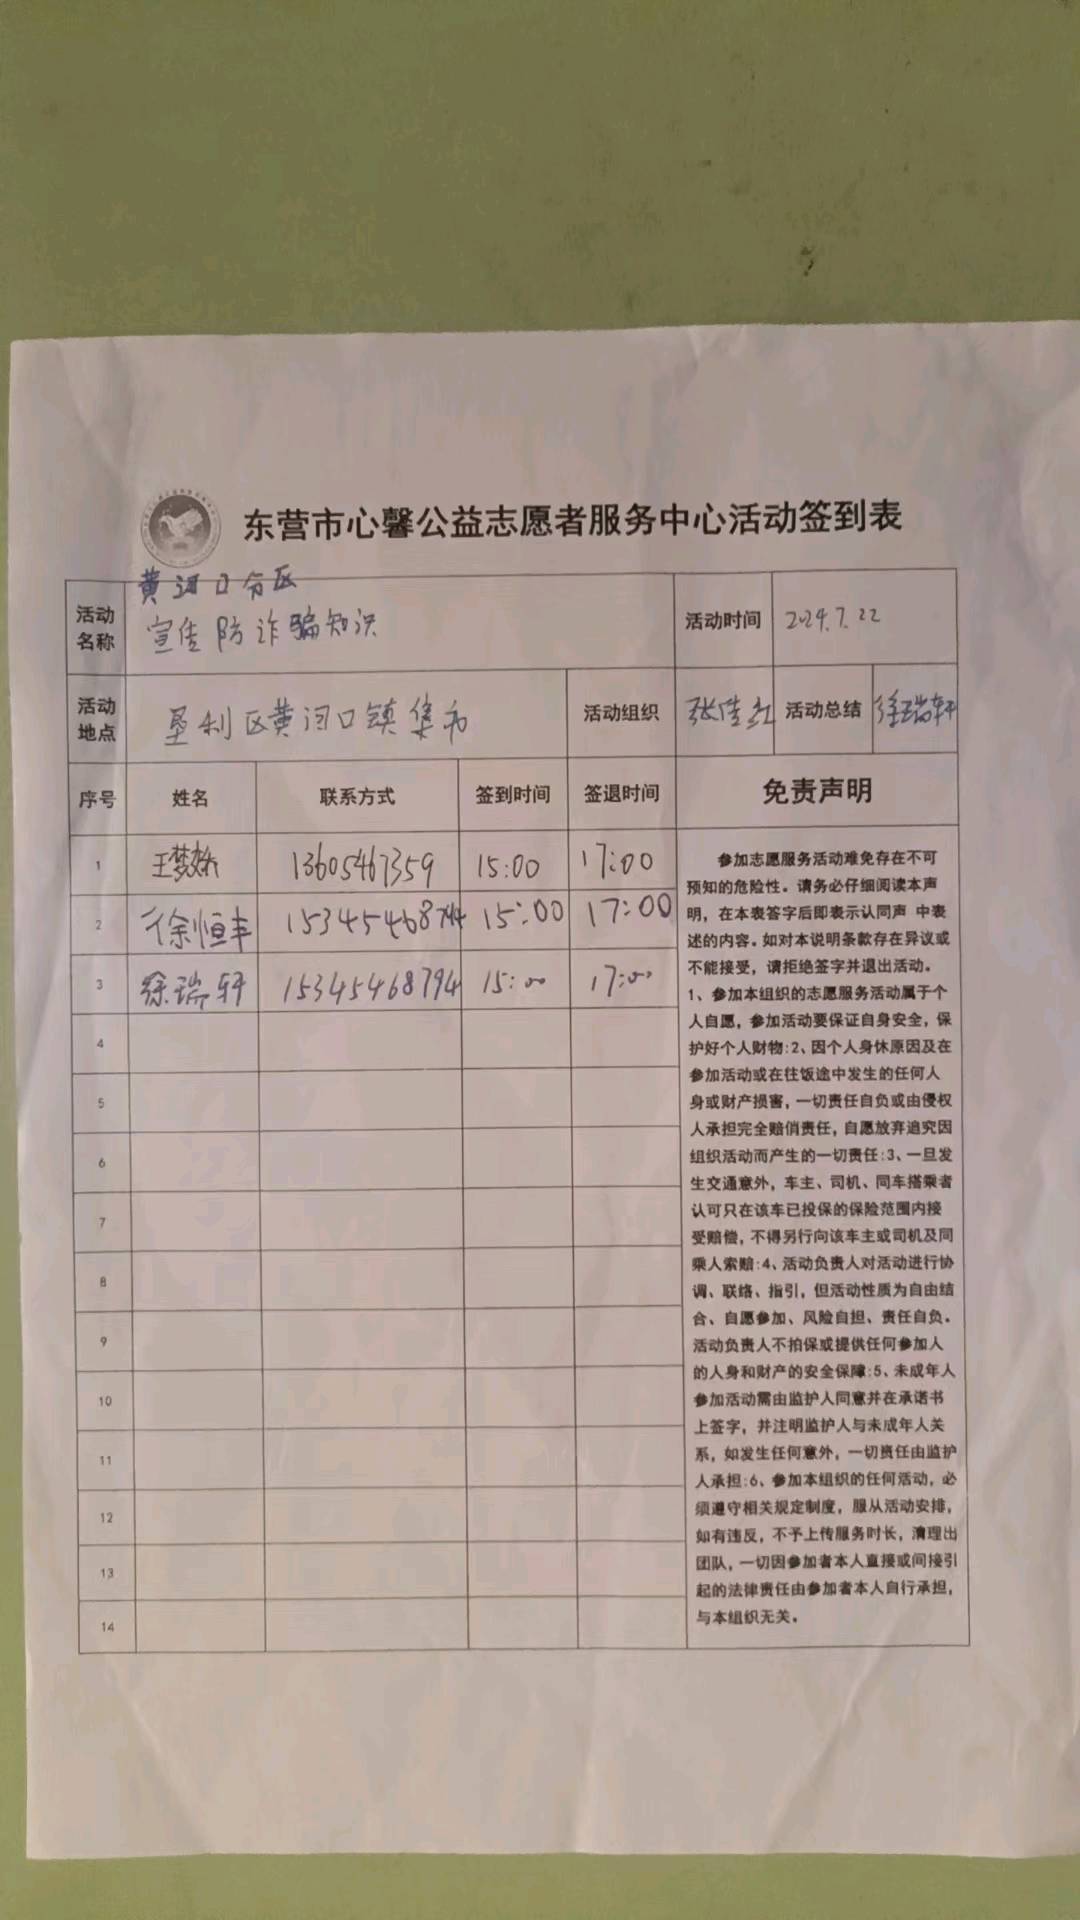 东营市心馨公益志愿者服务中心活动签到表
黄河口分区
活动名称 宣传防诈骗知识 活动时间 2024.7.22
活动地点 垦利区黄河口镇集市 活动组织 张佳红 活动总结 徐瑞轩
序号 姓名 联系方式 签到时间 签退时间 免责声明
1 王梦 13605467359 15:00 17:00
2 徐恒丰 15:00 17:00
3 徐瑞轩 15345468794 15:00 17:00
4
5
6
7
8
9
10
11
12
13
14
参加志愿服务活动难免存在不可
预知的危险性。请务必仔细阅读本声
明，在本表签字后即表示认同声 中表
述的内容。如对本说明条款存在异议或
不能接受，请拒绝签字并退出活动。
1、参加本组织的志愿服务活动属于个
人自愿，参加活动要保证自身安全，保
护好个人财物:2、因个人身休原因及在
参加活动或在往饭途中发生的任何人
身或财产损害，一切责任自负或由侵权
人承担完全赔俏责任，自愿放弃追究因
组织活动而产生的一切责任:3、一旦发
生交通意外，车主、司机、同车搭乘者
认可只在该车已投保的保险范围内接
受赔偿，不得另行向该车主或司机及同
乘人索赔:4、活动负责人对活动进行协
调、联络、指引，但活动性质为自由结
合、自愿参加、风险自担、责任自负。
活动负责人不拍保或提供任何参加人
的人身和财产的安全保障:5、未成年人
参加活动需由监护人同意并在承诺书
上签字，并注明监护人与未成年人关
系，如发生任何意外，一切责任由监护
人承担:6、参加本组织的任何活动，必
须遵守相关规定制度，服从活动安排，
如有违反，不予上传服务时长，清理出
团队，一切因参加者本人直接或间接引
起的法律责任由参加者本人自行承担，
与本组织无关。